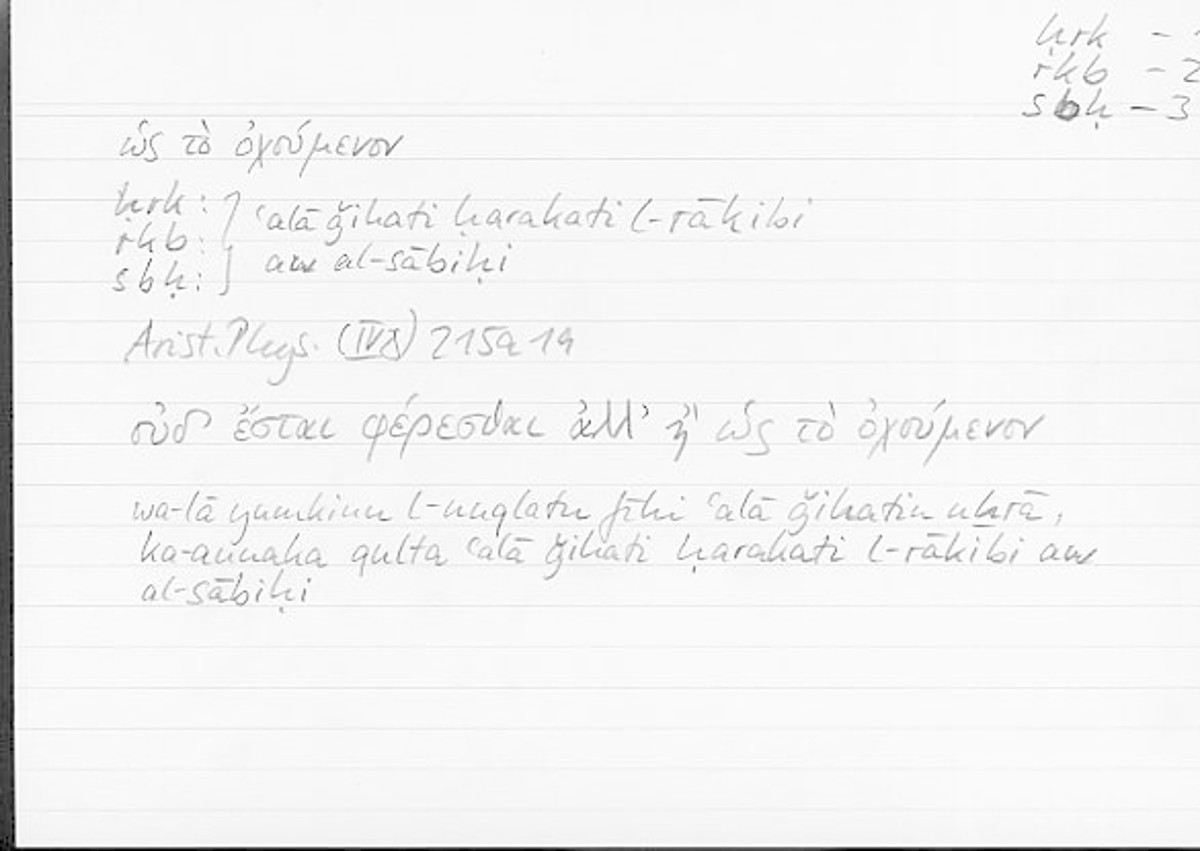 ḥrk - 1
rkb - 2
sbḥ - 3
ὡς τὸ ὀχούμενον
ḥrk: } ʿalā ǧihati ḥarakati l-rākibi
rkb: } aw al-sābiḥi
sbḥ: }
Arist. Phys. (IV 8) 215a 19
οὐδ᾽ ἔσται φέρεσθαι ἀλλ᾽ ἢ ὡς τὸ ὀχούμενον
wa-lā yumkinu l-nuqlatu fīhi ʿalā ǧihatin uḫrā,
ka-annaka qulta ʿalā ǧihati ḥarakati l-rākibi aw
al-sābiḥi